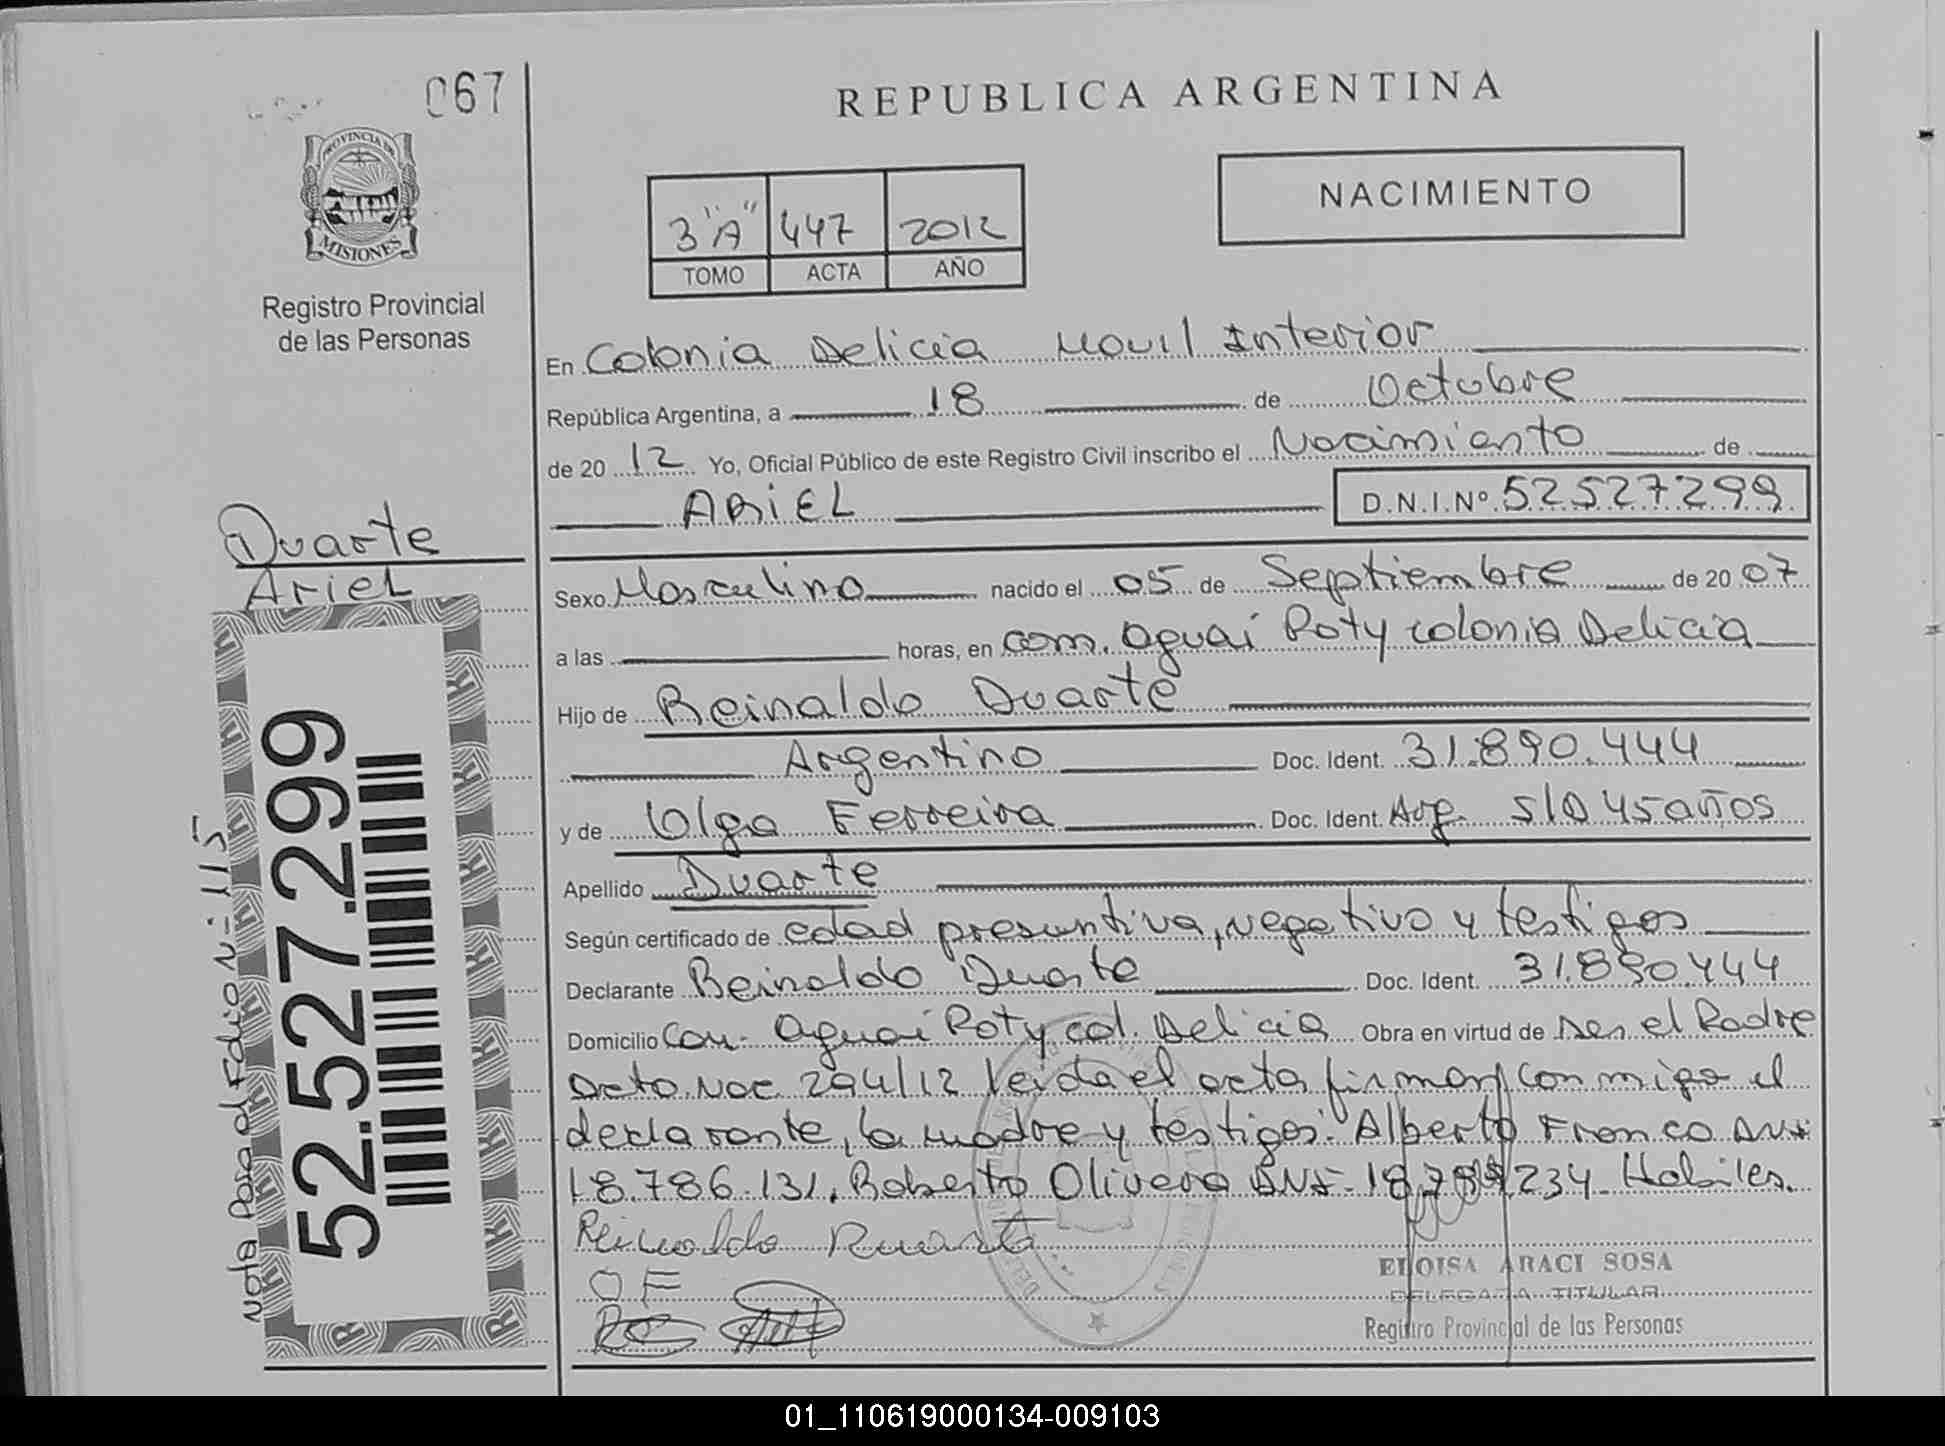 067
PROVINCIA DE
MISIONES
Registro Provincial
de las Personas
REPUBLICA ARGENTINA
3 "A" 447 2012
TOMO ACTA AÑO
NACIMIENTO
En Colonia Delicia Movil Interior
República Argentina, a 18 de Octubre
de 20 12 Yo, Oficial Público de este Registro Civil inscribo el Nacimiento de
ARIEL D.N.I.Nº 52527299
Duarte
Ariel
Sexo Masculino nacido el 05 de Septiembre de 20 07
a las horas, en com. aguai Poty colonia Delicia
Hijo de Reinaldo Duarte
Argentino Doc. Ident. 31.890.444
y de Olga Ferreira Doc. Ident. Arg. S/D 45 años
Apellido Duarte
Según certificado de edad presuntiva, negativo y testigos
Declarante Reinaldo Duarte Doc. Ident. 31.890.444
Domicilio Com. aguai Poty col. Delicia Obra en virtud de ser el Padre
acto. Nac. 294/12 leida el acta firman conmigo el
declarante, la madre y testigos: Alberto Franco DNI
18.786.131. Roberto Olivera DNI- 18. 234. Habiles.
Reinaldo Duarte
OF
ELOISA ARACI SOSA
DELEGADA TITULAR
Registro Provincial de las Personas
52.527.299
Nota Para el Folio N- 115
01_110619000134-009103